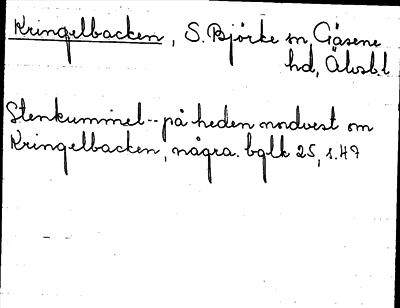 Kringelbacken, S. Björke sn Gäsene
hd, Älvsb.l
Stenkummel -- på heden nordvest om
Kringelbacken, några. bglk 25, s.49